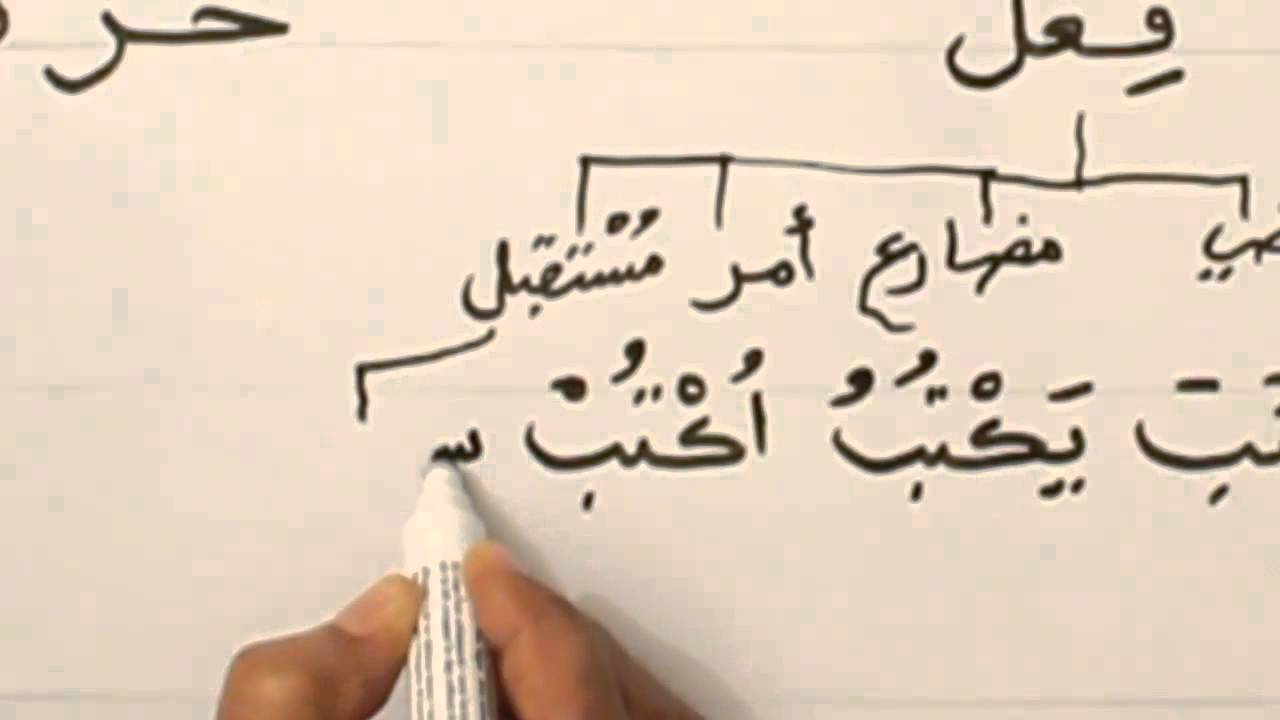 فِعل حر
مضارع أمر مُسْتَقبل
يَكْتُبُ اُكْتُبْ سـ